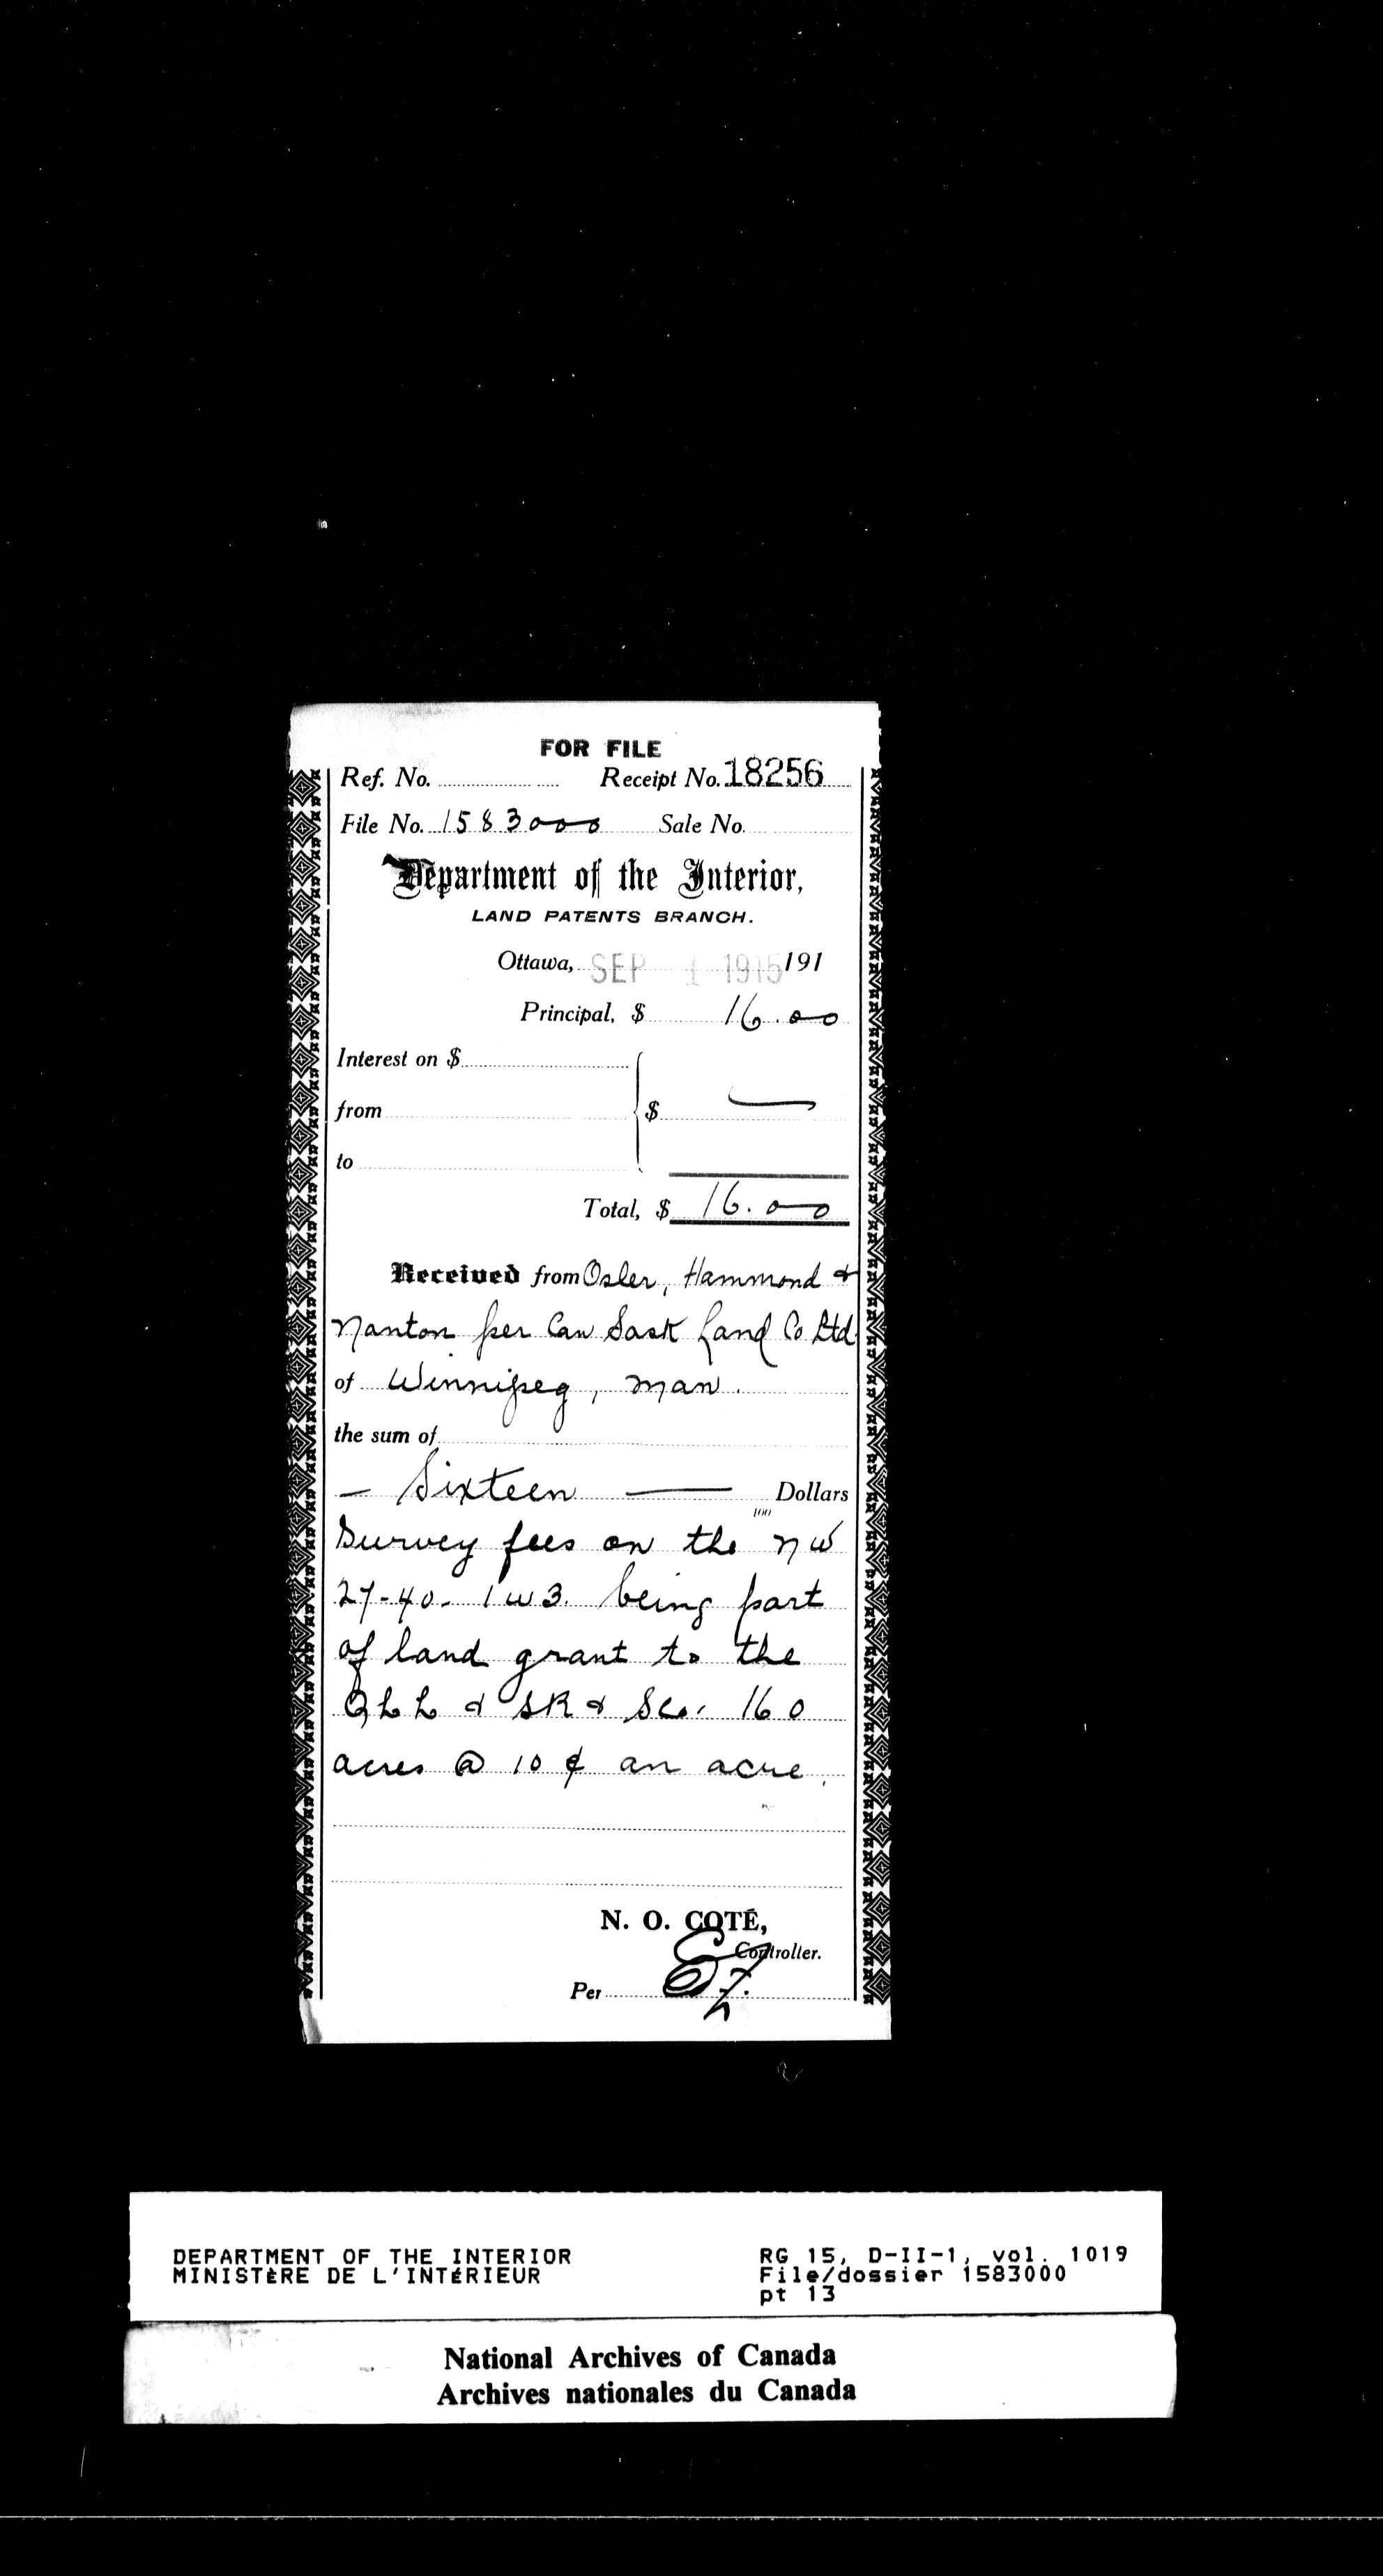 FOR FILE
Ref. No. Receipt No. 18256
File No. 1583000 Sale No.
Department of the Interior,
LAND PATENTS BRANCH.
Ottawa, SEP 1 1915 191
Principal, $ 16.00
Interest on $
from $ —
to
Total, $ 16.00
Received from Osler, Hammond &
Nanton per Can Sask Land Co Ltd
of Winnipeg, Man.
the sum of
— Sixteen — Dollars
100
Survey fees on the NW
27-40-1 W3. being part
of land grant to the
Q L L & SR & SCo. 160
acres @ 10 ¢ an acre.
N. O. COTÉ,
Controller.
Per
DEPARTMENT OF THE INTERIOR
MINISTÈRE DE L'INTÉRIEUR
RG 15, D-II-1, vol. 1019
File/dossier 1583000
pt 13
National Archives of Canada
Archives nationales du Canada